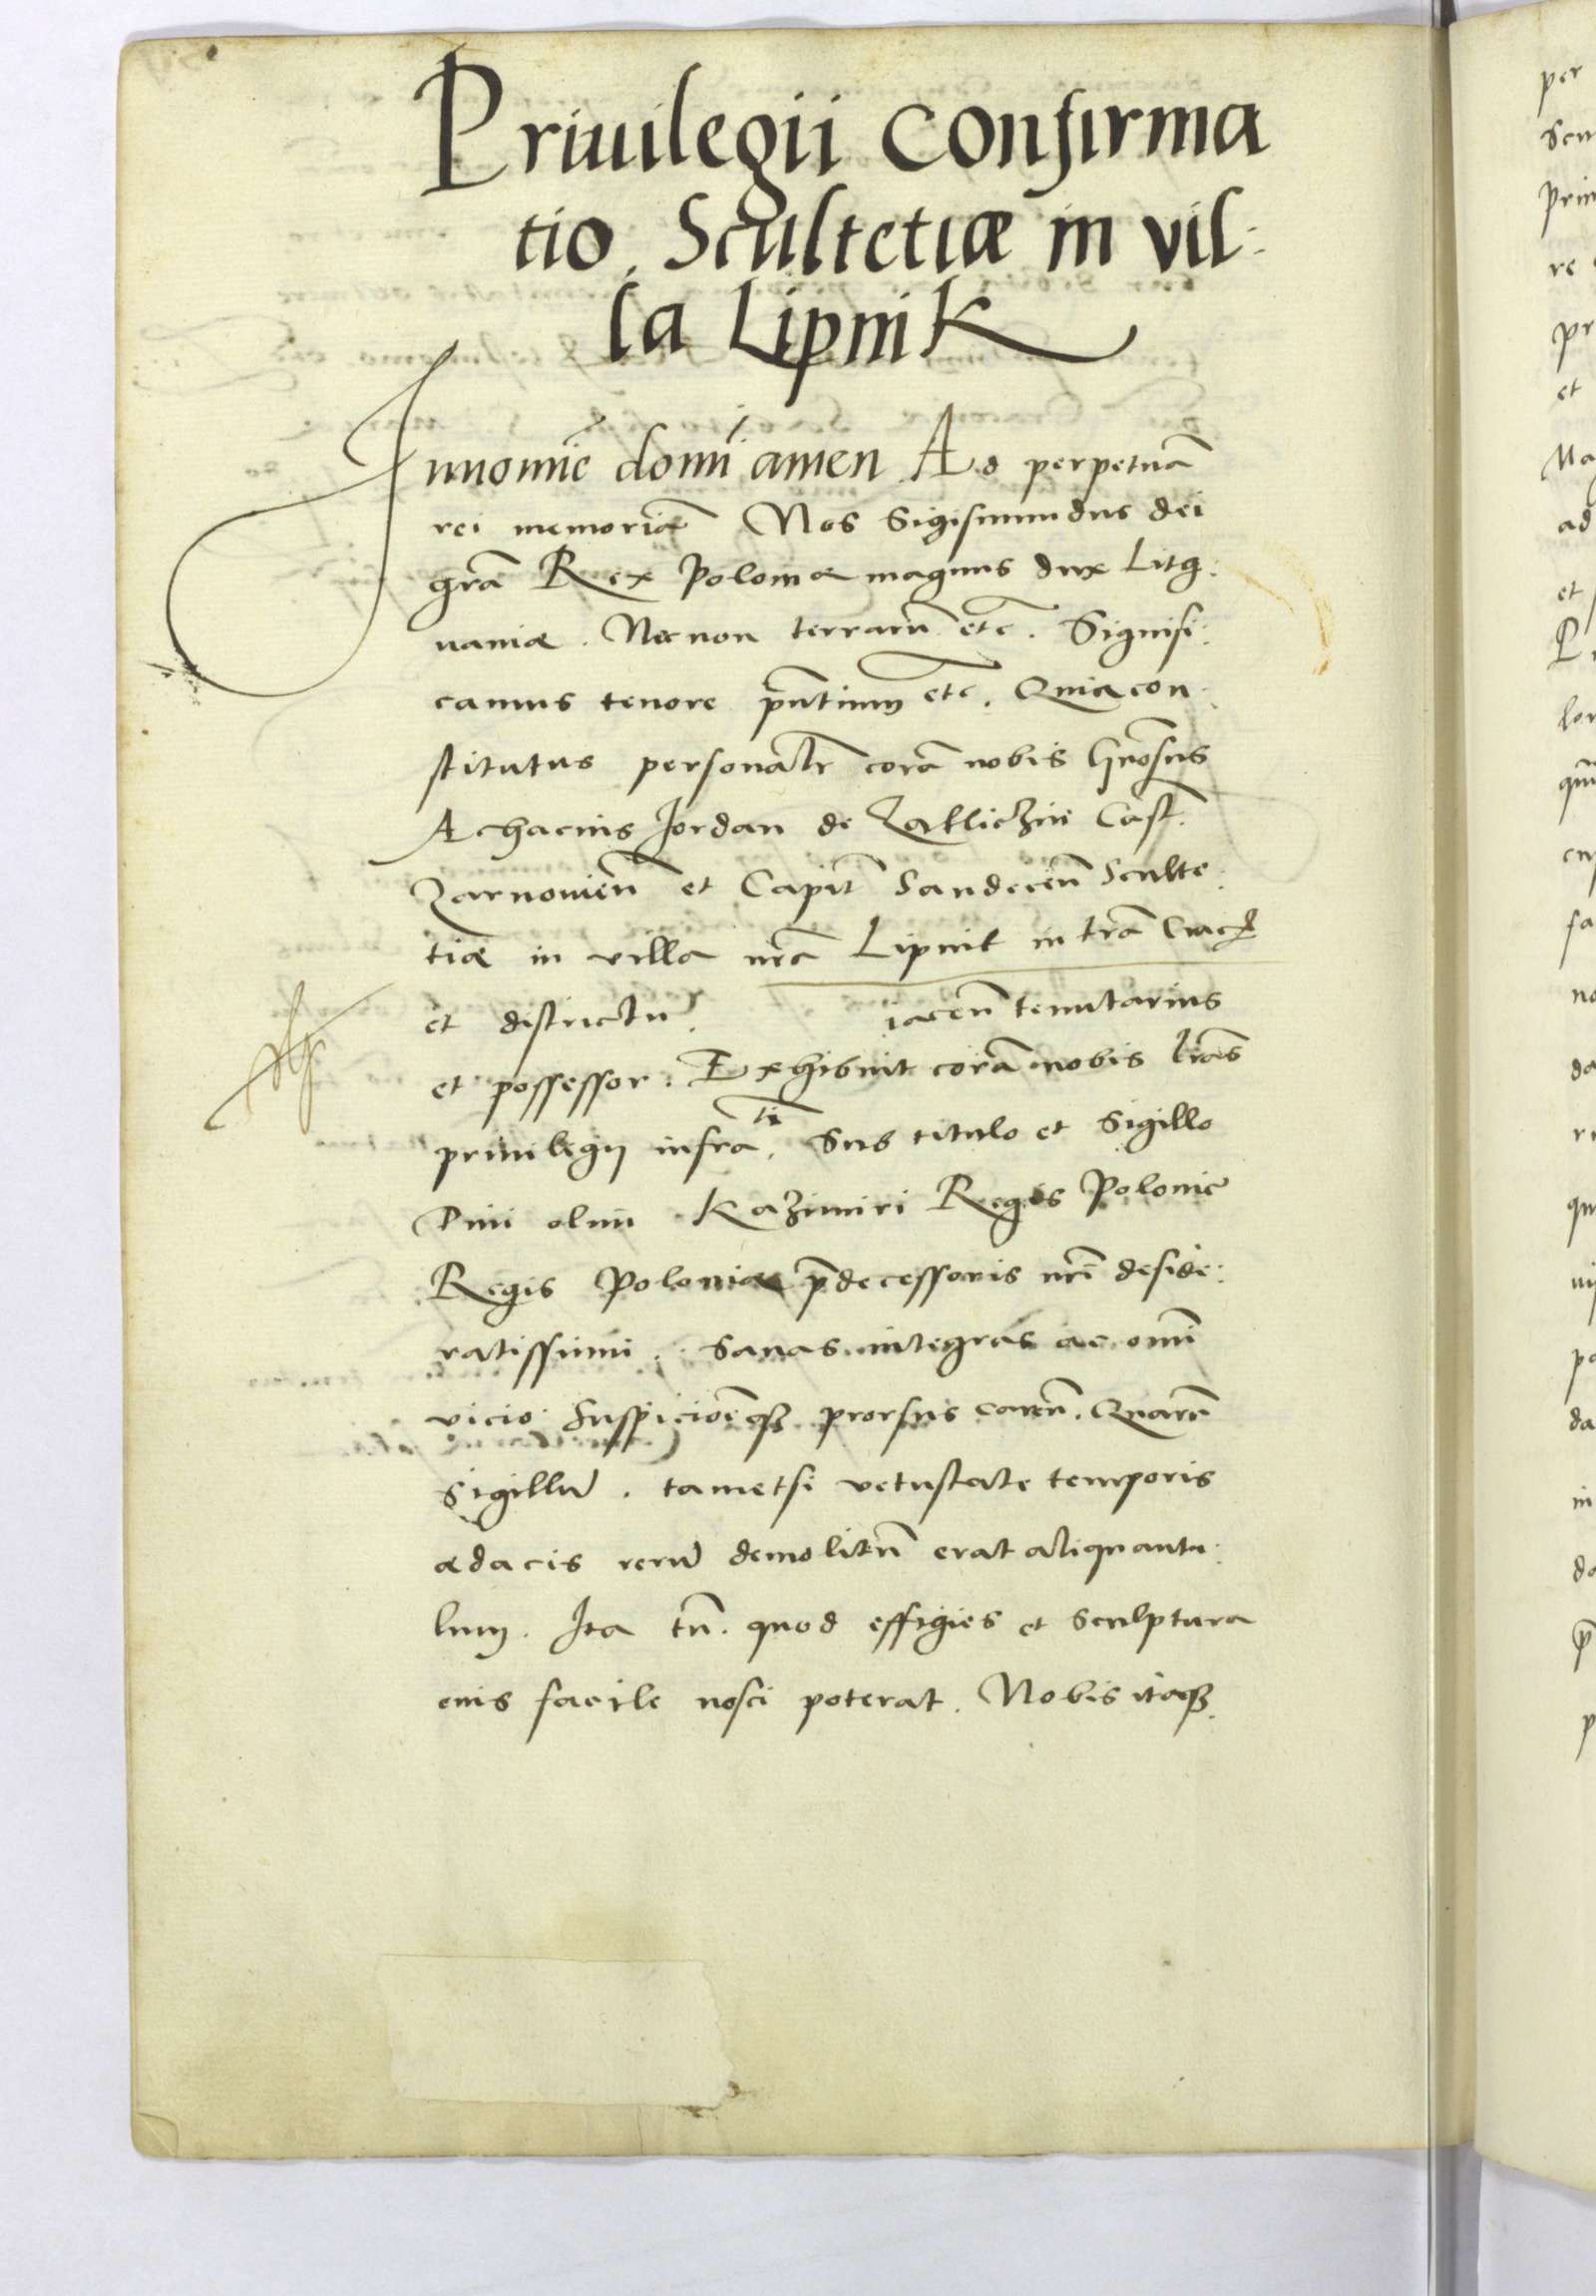 Priuilegii confirma
tio. Scultetiæ in vil:
la Lipnik
Innomīe domī amen Ad perpetuā
rei memoriā Nos Sigismundus dei
grā Rex Poloniæ magnus dux Litg:
uaniæ. Necnon terrarū etc̄. Signifi:
camus tenore p̄ntium etc. Quia con:
stitutus personalr̄ corā nobis Gn̄osus
Achacius Jordan de Zakliczin Cast.
Zarnouien̄ et Capit̄ Sandecen̄ Sculte:
tiæ in villa nr̄a Lipnik in trā Crac
et districtu. iacen̄ tenutarius
et possessor. Exhibuit corā nobis lr̄as
priuilegij infra ti. Sub titulo et Sigillo
Diui olim Kazimiri Regis Polonie
Regis Poloniæ p̄decessoris nr̄i deside:
ratissimi. Sanas integras ac omī
vicio Suspicioēqz prorsus caren̄. Quarū
Sigillū. tametsi vetustate temporis
ædacis rerū demolitū erat aliquantu:
lum. Ita tn̄. quod effigies et Sculptura
euis facile nosci poterat. Nobis itaqz.
per
Scu
prin
re
pr
et
Ma
ad
et
lor
fa
no
da
ri
po
da
in
do